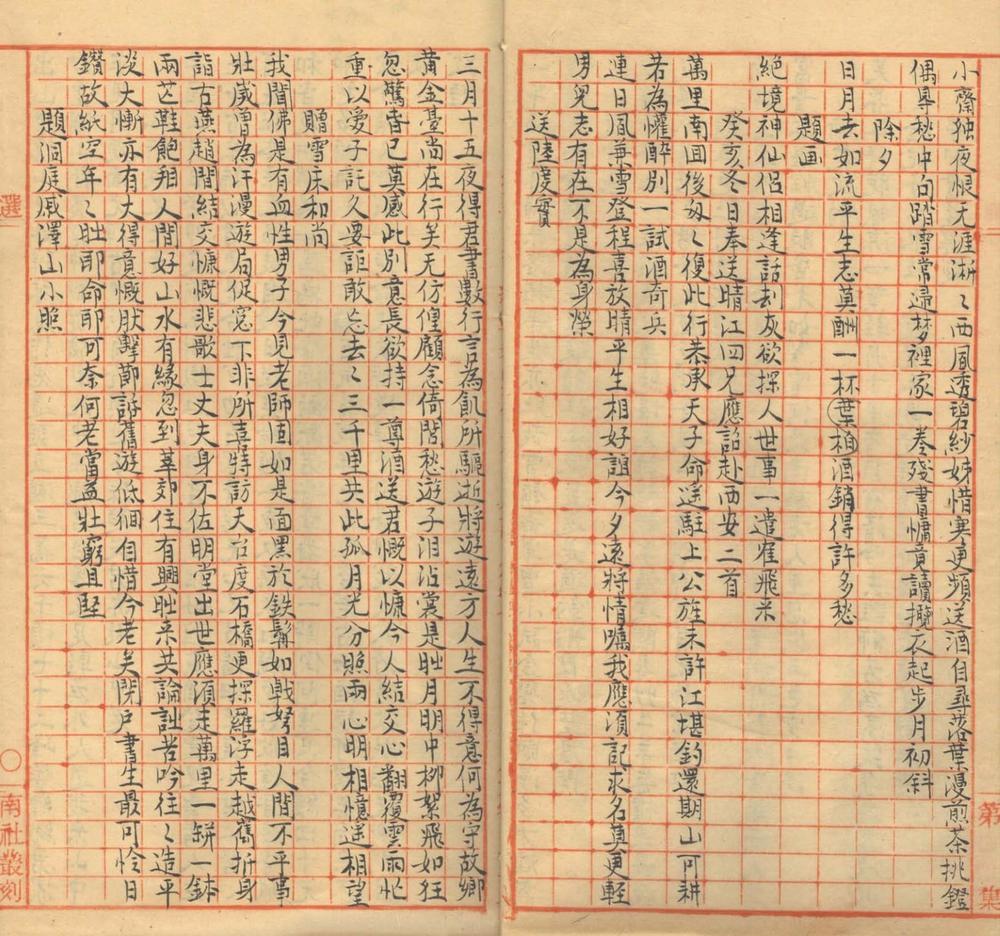 小齋独夜恨无涯淅〻西風透碧紗姊惜寒更頻送酒自尋落葉漫煎茶挑鐙
偶畢愁中句踏雪常歸梦裡家一卷殘書慵竟讀攬衣起步月初斜
除夕
日月去如流平生志莫酬一杯葉柏酒銷得許多愁
題画
絕境神仙侶相逢話刦灰欲探人世事一遣隺飛来
癸亥冬日奉送晴江四兄應詔赴西安二首
萬里南囬後匆〻復此行恭承天子命遥駐上公旌未許江堪釣還期山可耕
若為懽醉別一試酒奇兵
連日風兼雪登程喜放晴平生相好誼今夕遠將情囑我應須記求名莫更輕
男兒志有在不是為身榮
送陸度實
三月十五夜得君書數行言為飢所驅逝將遊遠方人生不得意何為守故鄉
黄金臺尚在行矣无仿偟顧念倚閭愁遊子泪沾裳是時月明中柳絮飛如狂
忽驚春已莫感此別意長欲持一尊酒送君慨以慷今人結交心翻覆雲雨忙
重以愛子託久要詎敢忘去〻三千里共此孤月光分照兩心明相憶遥相望
贈雪床和尚
我聞佛是有血性男子今見老師固如是面黑於鉄鬚如戟努目人間不平事
壯歲曽為汗漫遊局促窓下非所喜特訪天台度石橋更探羅浮走越嶲折身
詣古燕趙間結交慷慨悲歌士丈夫身不佐明堂出世應須走萬里一缾一鉢
兩芒鞋飽翔人間好山水有緣忽到莘郊住有興時来共論詩苦吟往〻造平
淡大慚亦有大得意慨肰擊節訴舊遊低徊自惜今老矣閉戶書生最可怜日
鑽故紙空年〻時耶命耶可奈何老當益壯窮且堅
題洞庭戚澤山小照
第
集
選
〇
南社叢刻